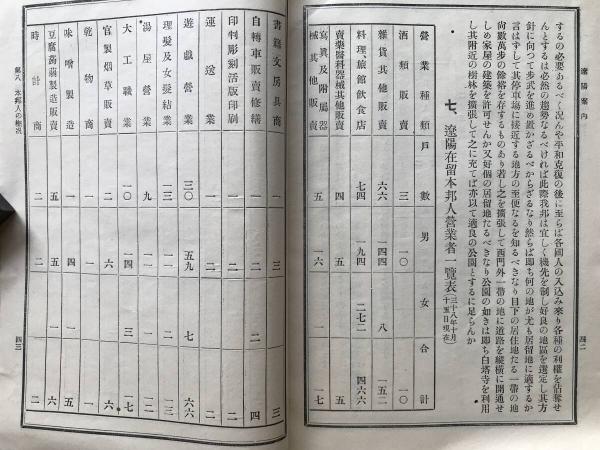 遼陽案內
四二
するの必要あるべく况んや平和克復の後に至らば各國人の入込み來り各種の利權を佔奪せ
んとするは必然の趨勢なるべければ此際我邦は宜しく機先を制し好良の地區を選定し其方
針に向つて步武を進め置かざるべからざるなり然らば即ち何の地が尤も居留地に適するか
言はずして其停車場に接近する地方の至便なるを知るべきなり目下の居住地たる一帶の地
尙數萬步の餘裕を存するものあり若し之を擴張して西門外一帶の地に道路を縱橫に開通せ
しめ家屋の建築を許可せんか又好個の居留地たるべきなり公園の如きは即ち白塔寺を利用
し其附近の樹林を擴張して之に充てば亦以て適良の公園とするに足らんか
七、遼陽在留本邦人營業者一覽表(三十八年十月十五日現在)
營業種類 戶數 男 女 合計
酒類販賣 三 一〇 一〇
雜貨其他販賣 六六 一四四 八 一五二
料理、旅館飲食店 七四 一九四 二七二 四六六
賣藥醫科器械其他販賣 四 五 五
寫眞及附屬器械其他販賣 五 一六 一 一七
書籍文房具商 一 三 三
自轉車販賣修繕 一 二 二 四
印判彫刻活版印刷 一 二 二
運送業 二 二 二
遊戲營業 三〇 五九 七 六六
理髮及女髮結業 一三 二一 一 二二
湯屋營業 九 一二 一 一三
大工職業 一〇 一四 三 一七
官製烟草販賣 二 六 六
乾物商 一 一 一
味噌製造 一 四 一 五
豆腐蒟蒻製造販賣 五 五 一 六
時計商 二 二 二
第八 本邦人の槪況
四三